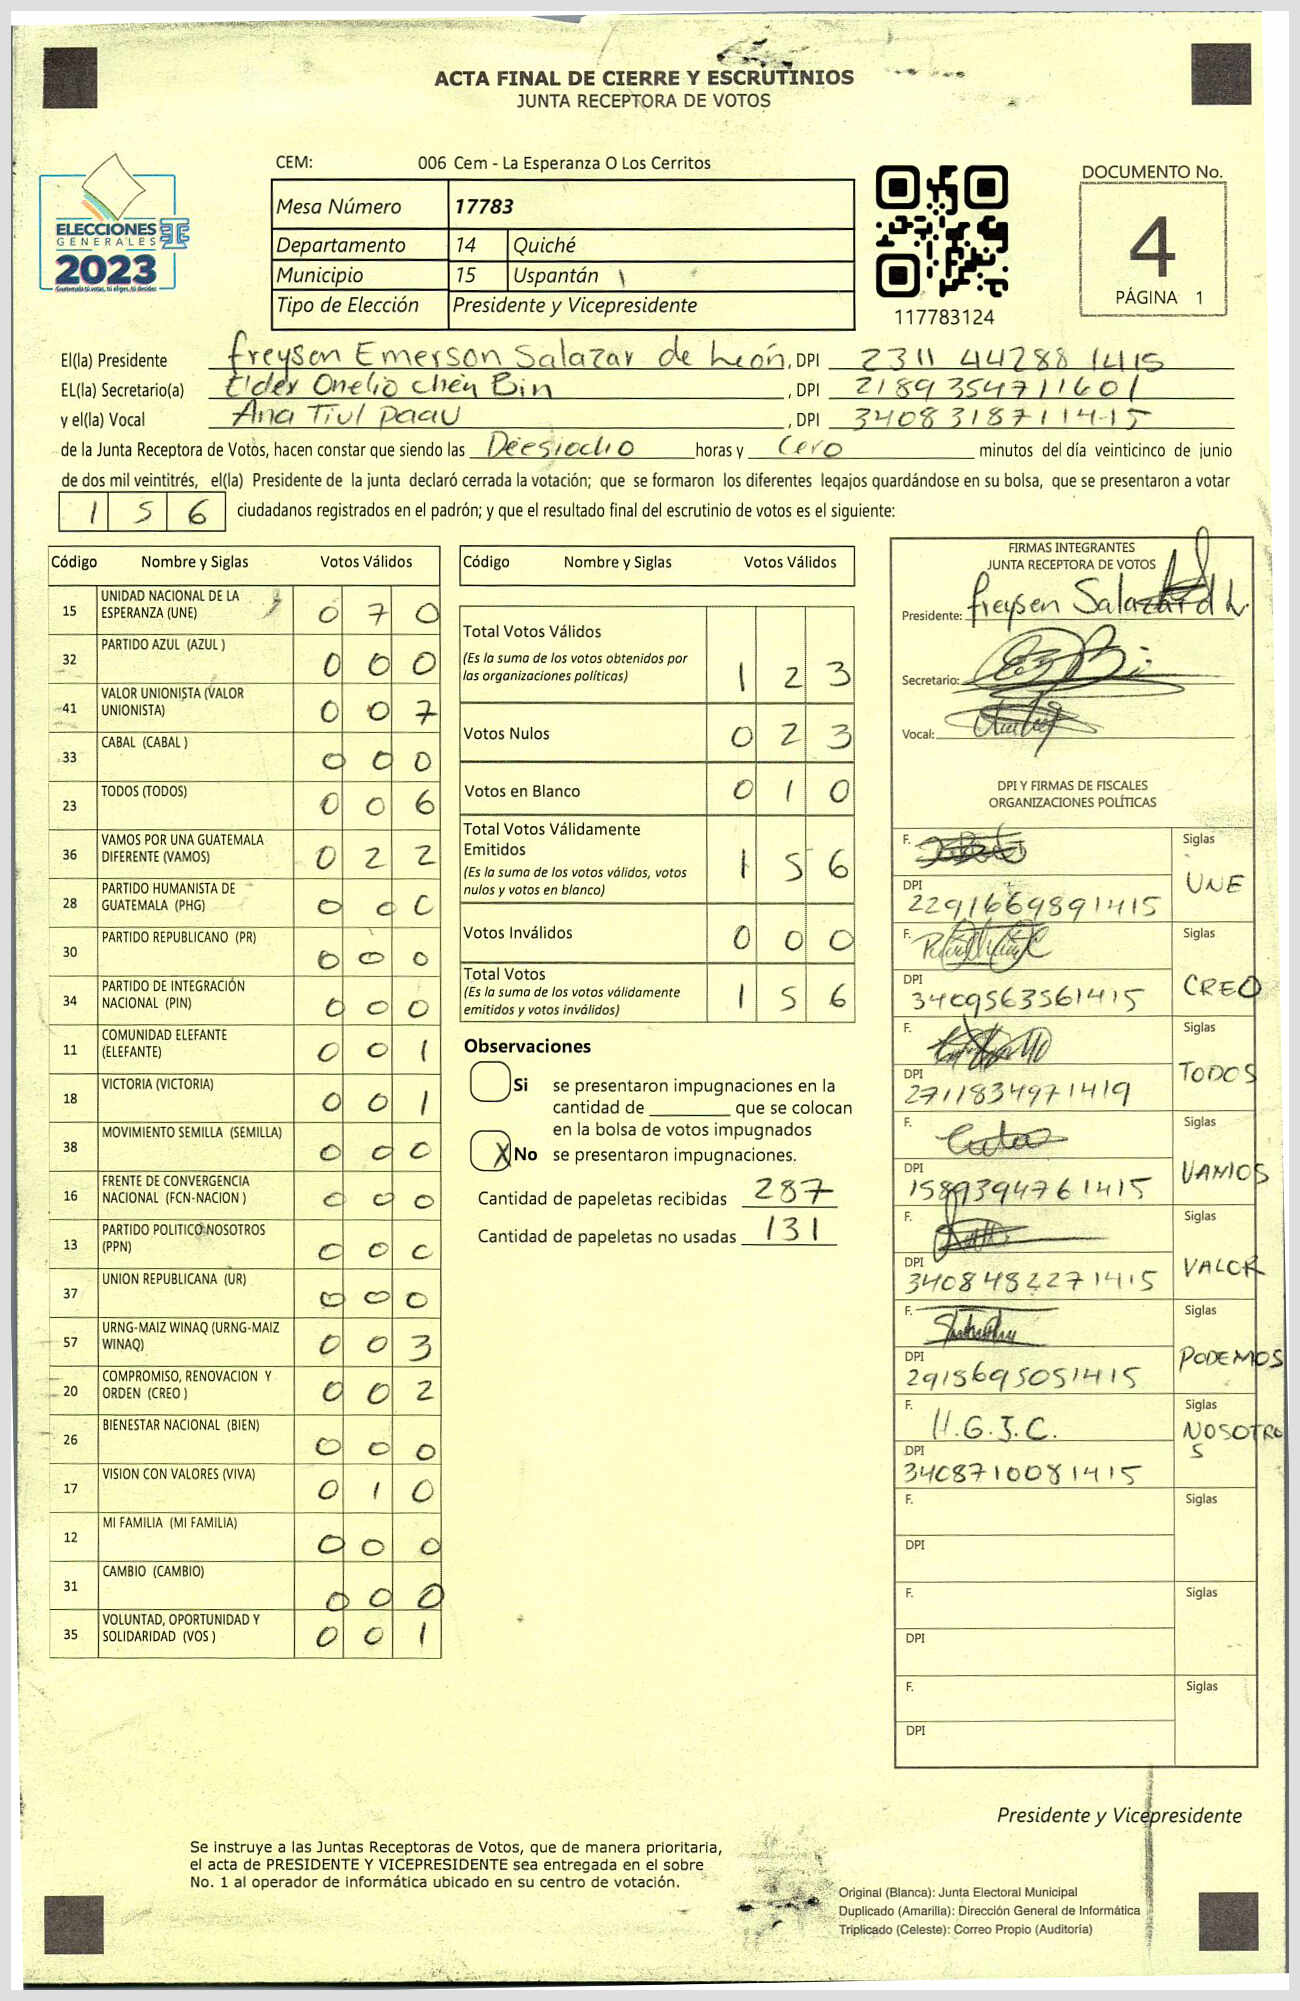 ACTA FINAL DE CIERRE Y ESCRUTINIOS
JUNTA RECEPTORA DE VOTOS
CEM: 006 Cem - La Esperanza O Los Cerritos
ELECCIONES
GENERALES
2023
Mesa Número 17783
Departamento 14 Quiché
Municipio 15 Uspantán
Tipo de Elección Presidente y Vicepresidente
117783124
DOCUMENTO No.
4
PÁGINA 1
El(la) Presidente freyson Emerson Salazar de León, DPI 2311 44288 1415
EL(la) Secretario(a) Elder Onelio Chén Bin, DPI 2189354711601
y el(la) Vocal Ana Tiul paau, DPI 3408318711415
de la Junta Receptora de Votos, hacen constar que siendo las Deesiocho horas y Cero minutos del día veinticinco de junio
de dos mil veintitrés, el(la) Presidente de la junta declaró cerrada la votación; que se formaron los diferentes legajos guardándose en su bolsa, que se presentaron a votar
156 ciudadanos registrados en el padrón; y que el resultado final del escrutinio de votos es el siguiente:
Código Nombre y Siglas Votos Válidos
15 UNIDAD NACIONAL DE LA ESPERANZA (UNE) 070
32 PARTIDO AZUL (AZUL ) 000
41 VALOR UNIONISTA (VALOR UNIONISTA) 007
33 CABAL (CABAL ) 000
23 TODOS (TODOS) 006
36 VAMOS POR UNA GUATEMALA DIFERENTE (VAMOS) 022
28 PARTIDO HUMANISTA DE GUATEMALA (PHG) 000
30 PARTIDO REPUBLICANO (PR) 000
34 PARTIDO DE INTEGRACIÓN NACIONAL (PIN) 000
11 COMUNIDAD ELEFANTE (ELEFANTE) 001
18 VICTORIA (VICTORIA) 001
38 MOVIMIENTO SEMILLA (SEMILLA) 000
16 FRENTE DE CONVERGENCIA NACIONAL (FCN-NACION ) 000
13 PARTIDO POLITICO NOSOTROS (PPN) 000
37 UNION REPUBLICANA (UR) 000
57 URNG-MAIZ WINAQ (URNG-MAIZ WINAQ) 003
20 COMPROMISO, RENOVACION Y ORDEN (CREO ) 002
26 BIENESTAR NACIONAL (BIEN) 000
17 VISION CON VALORES (VIVA) 010
12 MI FAMILIA (MI FAMILIA) 000
31 CAMBIO (CAMBIO) 000
35 VOLUNTAD, OPORTUNIDAD Y SOLIDARIDAD (VOS ) 001
Código Nombre y Siglas Votos Válidos
Total Votos Válidos
(Es la suma de los votos obtenidos por
las organizaciones políticas) 123
Votos Nulos 023
Votos en Blanco 010
Total Votos Válidamente
Emitidos
(Es la suma de los votos válidos, votos
nulos y votos en blanco) 156
Votos Inválidos 000
Total Votos
(Es la suma de los votos válidamente
emitidos y votos inválidos) 156
Observaciones
Si se presentaron impugnaciones en la
cantidad de ________ que se colocan
en la bolsa de votos impugnados
X No se presentaron impugnaciones.
Cantidad de papeletas recibidas 287
Cantidad de papeletas no usadas 131
FIRMAS INTEGRANTES
JUNTA RECEPTORA DE VOTOS
Presidente: freysen Salazar d L.
Secretario:
Vocal:
DPI Y FIRMAS DE FISCALES
ORGANIZACIONES POLÍTICAS
F. Siglas
UNE
DPI 2291669891415
F. Siglas
CREO
DPI 3409563561415
F. Siglas
TODOS
DPI 2711834971419
F. Siglas
VAMOS
DPI 1589394761415
F. Siglas
VALOR
DPI 3408482271415
F. Siglas
PODEMOS
DPI 2915695051415
F. H.G.J.C. Siglas
NOSOTRO
S
DPI 3408710081415
F. Siglas
DPI
F. Siglas
DPI
F. Siglas
DPI
Presidente y Vicepresidente
Se instruye a las Juntas Receptoras de Votos, que de manera prioritaria,
el acta de PRESIDENTE Y VICEPRESIDENTE sea entregada en el sobre
No. 1 al operador de informática ubicado en su centro de votación.
Original (Blanca): Junta Electoral Municipal
Duplicado (Amarilla): Dirección General de Informática
Triplicado (Celeste): Correo Propio (Auditoría)